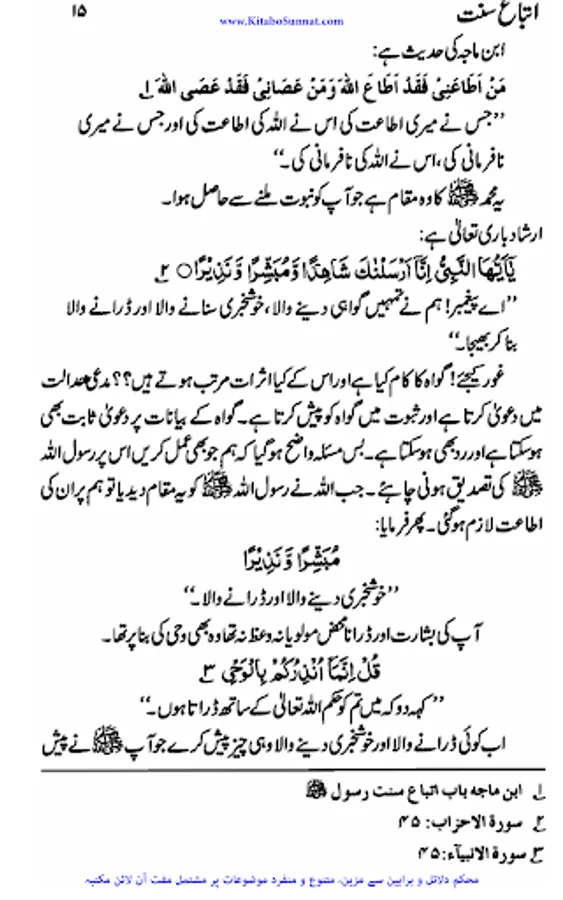 اتباع سنت www.KitaboSunnat.com ۱۵
ابن ماجہ کی حدیث ہے:
مَنْ اَطَاعَنِیْ فَقَدْ اَطَاعَ اللّٰہَ وَمَنْ عَصَانِیْ فَقَدْ عَصَی اللّٰہَ ۱؎
”جس نے میری اطاعت کی اس نے اللہ کی اطاعت کی اور جس نے میری
نافرمانی کی، اس نے اللہ کی نافرمانی کی۔“
یہ محمد ﷺ کا وہ مقام ہے جو آپ کو نبوت ملنے سے حاصل ہوا۔
ارشاد باری تعالیٰ ہے:
یٰٓاَیُّهَا النَّبِیُّ اِنَّآ اَرْسَلْنٰكَ شَاهِدًا وَّمُبَشِّرًا وَّنَذِیْرًا ○ ۲؎
”اے پیغمبر! ہم نے تمہیں گواہی دینے والا، خوشخبری سنانے والا اور ڈرانے والا
بنا کر بھیجا۔“
غور کیجئے! گواہ کا کام کیا ہے اور اس کے کیا اثرات مرتب ہوتے ہیں؟؟ مدعی عدالت
میں دعویٰ کرتا ہے اور ثبوت میں گواہ کو پیش کرتا ہے۔ گواہ کے بیانات پر دعویٰ ثابت بھی
ہو سکتا ہے اور رد بھی ہو سکتا ہے۔ بس مسئلہ واضح ہو گیا کہ ہم جو بھی عمل کریں اس پر رسول اللہ
ﷺ کی تصدیق ہونی چاہئے۔ جب اللہ نے رسول اللہ ﷺ کو یہ مقام دیدیا تو ہم پر ان کی
اطاعت لازم ہو گئی۔ پھر فرمایا:
مُبَشِّرًا وَّنَذِیْرًا
”خوشخبری دینے والا اور ڈرانے والا۔“
آپ کی بشارت اور ڈرانا محض مولویانہ وعظ نہ تھا وہ بھی وحی کی بنا پر تھا۔
قُلْ اِنَّمَآ اُنْذِرُكُمْ بِالْوَحْیِ ۳؎
”کہہ دو کہ میں تم کو حکم اللہ تعالیٰ کے ساتھ ڈراتا ہوں۔“
اب کوئی ڈرانے والا اور خوشخبری دینے والا وہی چیز پیش کرے جو آپ ﷺ نے پیش
۱؎ ابن ماجه باب اتباع سنت رسول ﷺ
۲؎ سورة الاحزاب: ۴۵
۳؎ سورة الانبیآء: ۴۵
محکم دلائل و براہین سے مزین، متنوع و منفرد موضوعات پر مشتمل مفت آن لائن مکتبہ